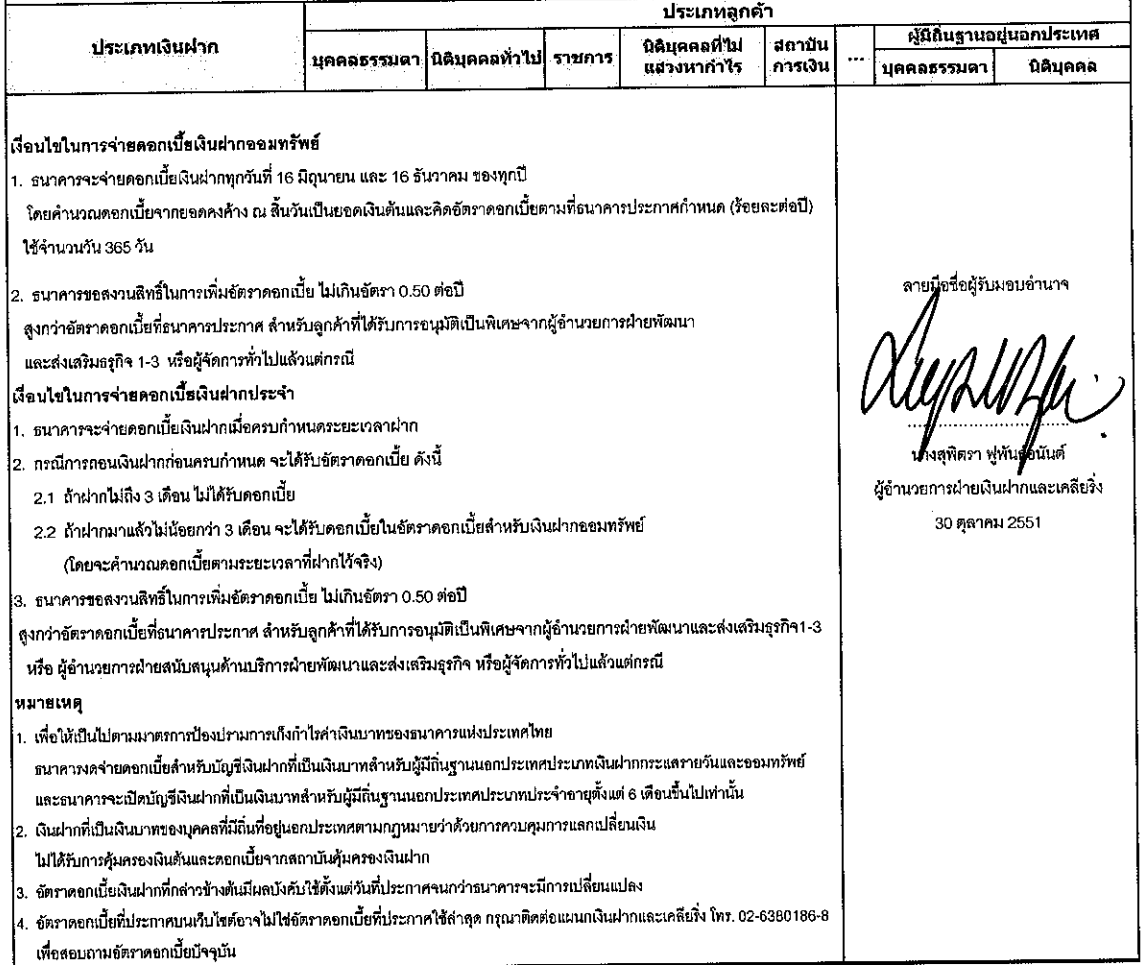 ประเภทเงินฝาก
ประเภทลูกค้า
บุคคลธรรมดา
นิติบุคคลทั่วไป
ราชการ
นิติบุคคลที่ไม่
แสวงหากำไร
สถาบัน
การเงิน
...
ผู้มีถิ่นฐานอยู่นอกประเทศ
บุคคลธรรมดา
นิติบุคคล
เงื่อนไขในการจ่ายดอกเบี้ยเงินฝากออมทรัพย์
1. ธนาคารจะจ่ายดอกเบี้ยเงินฝากทุกวันที่ 16 มิถุนายน และ 16 ธันวาคม ของทุกปี
โดยคำนวณดอกเบี้ยจากยอดคงค้าง ณ สิ้นวันเป็นยอดเงินต้นและคิดอัตราดอกเบี้ยตามที่ธนาคารประกาศกำหนด (ร้อยละต่อปี)
ใช้จำนวนวัน 365 วัน
2. ธนาคารขอสงวนสิทธิ์ในการเพิ่มอัตราดอกเบี้ย ไม่เกินอัตรา 0.50 ต่อปี
สูงกว่าอัตราดอกเบี้ยที่ธนาคารประกาศ สำหรับลูกค้าที่ได้รับการอนุมัติเป็นพิเศษจากผู้อำนวยการฝ่ายพัฒนา
และส่งเสริมธุรกิจ 1-3 หรือผู้จัดการทั่วไปแล้วแต่กรณี
เงื่อนไขในการจ่ายดอกเบี้ยเงินฝากประจำ
1. ธนาคารจะจ่ายดอกเบี้ยเงินฝากเมื่อครบกำหนดระยะเวลาฝาก
2. กรณีการถอนเงินฝากก่อนครบกำหนด จะได้รับอัตราดอกเบี้ย ดังนี้
2.1 ถ้าฝากไม่ถึง 3 เดือน ไม่ได้รับดอกเบี้ย
2.2 ถ้าฝากมาแล้วไม่น้อยกว่า 3 เดือน จะได้รับดอกเบี้ยในอัตราดอกเบี้ยสำหรับเงินฝากออมทรัพย์
(โดยจะคำนวณดอกเบี้ยตามระยะเวลาที่ฝากไว้จริง)
3. ธนาคารขอสงวนสิทธิ์ในการเพิ่มอัตราดอกเบี้ย ไม่เกินอัตรา 0.50 ต่อปี
สูงกว่าอัตราดอกเบี้ยที่ธนาคารประกาศ สำหรับลูกค้าที่ได้รับการอนุมัติเป็นพิเศษจากผู้อำนวยการฝ่ายพัฒนาและส่งเสริมธุรกิจ1-3
หรือ ผู้อำนวยการฝ่ายสนับสนุนด้านบริการฝ่ายพัฒนาและส่งเสริมธุรกิจ หรือผู้จัดการทั่วไปแล้วแต่กรณี
หมายเหตุ
1. เพื่อให้เป็นไปตามมาตรการป้องปรามการเก็งกำไรค่าเงินบาทของธนาคารแห่งประเทศไทย
ธนาคารงดจ่ายดอกเบี้ยสำหรับบัญชีเงินฝากที่เป็นเงินบาทสำหรับผู้มีถิ่นฐานนอกประเทศประเภทเงินฝากกระแสรายวันและออมทรัพย์
และธนาคารจะเปิดบัญชีเงินฝากที่เป็นเงินบาทสำหรับผู้มีถิ่นฐานนอกประเทศประเภทประจำอายุตั้งแต่ 6 เดือนขึ้นไปเท่านั้น
2. เงินฝากที่เป็นเงินบาทของบุคคลที่มีถิ่นที่อยู่นอกประเทศตามกฎหมายว่าด้วยการควบคุมการแลกเปลี่ยนเงิน
ไม่ได้รับการคุ้มครองเงินต้นและดอกเบี้ยจากสถาบันคุ้มครองเงินฝาก
3. อัตราดอกเบี้ยเงินฝากที่กล่าวข้างต้นมีผลบังคับใช้ตั้งแต่วันที่ประกาศจนกว่าธนาคารจะมีการเปลี่ยนแปลง
4. อัตราดอกเบี้ยที่ประกาศบนเว็บไซต์อาจไม่ใช่อัตราดอกเบี้ยที่ประกาศใช้ล่าสุด กรุณาติดต่อแผนกเงินฝากและเคลียริ่ง โทร. 02-6380186-8
เพื่อสอบถามอัตราดอกเบี้ยปัจจุบัน
ลายมือชื่อผู้รับมอบอำนาจ
นางสุพิตรา ฟูพันธ์อนันต์
ผู้อำนวยการฝ่ายเงินฝากและเคลียริ่ง
30 ตุลาคม 2551